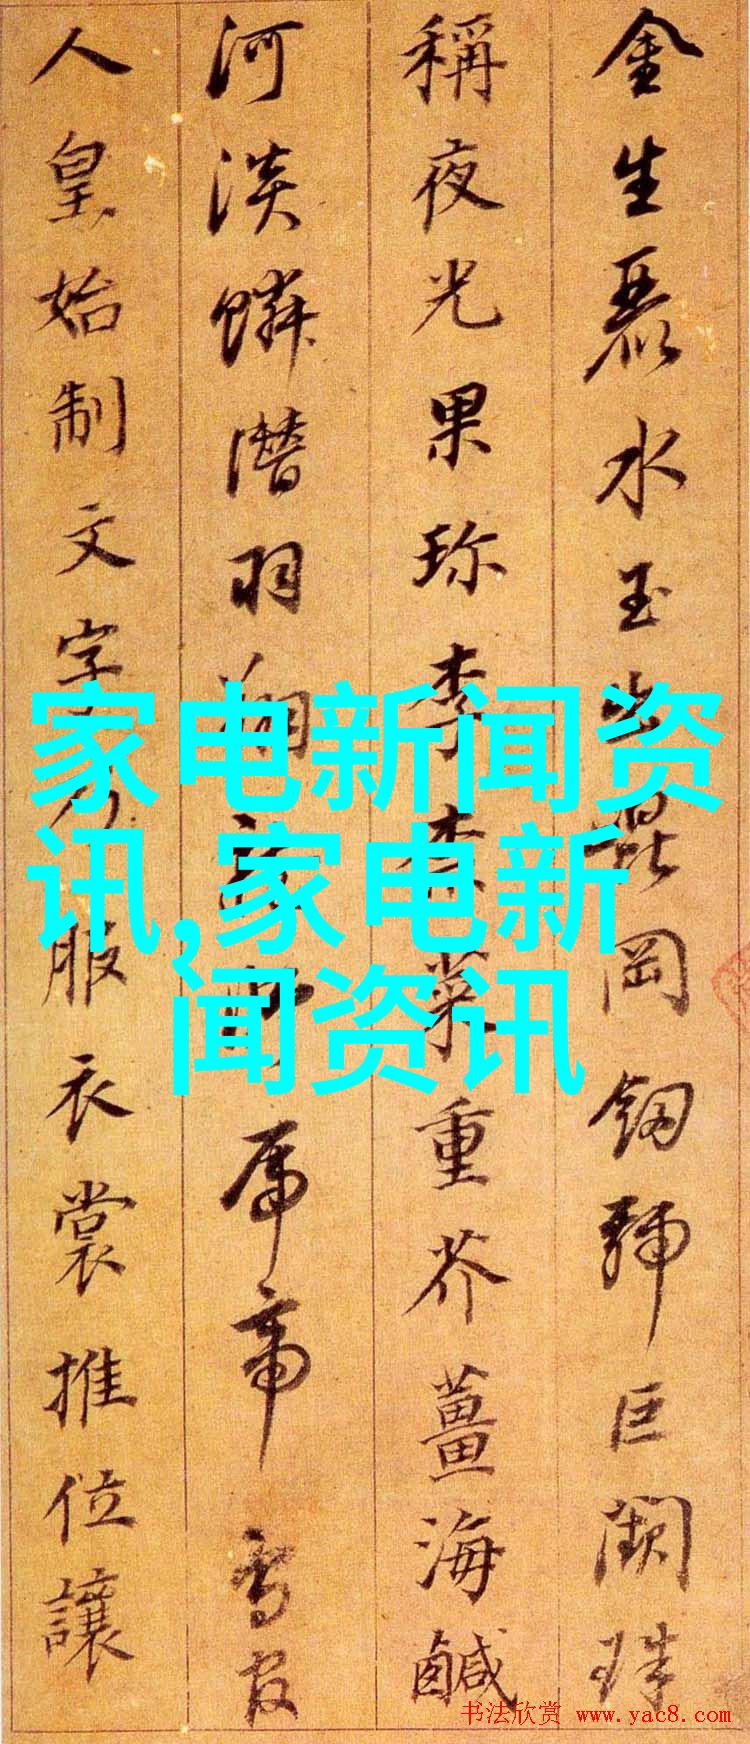 金生麗水玉出崑岡釼號巨闕珠
稱夜光果珍李柰菜重芥薑海鹹
河淡鱗潛羽翔龍師帝鳥官
人皇始制文字乃服衣裳推位讓
家电新闻资
讯,家电新
闻资讯
书法欣赏 www.yac8.com